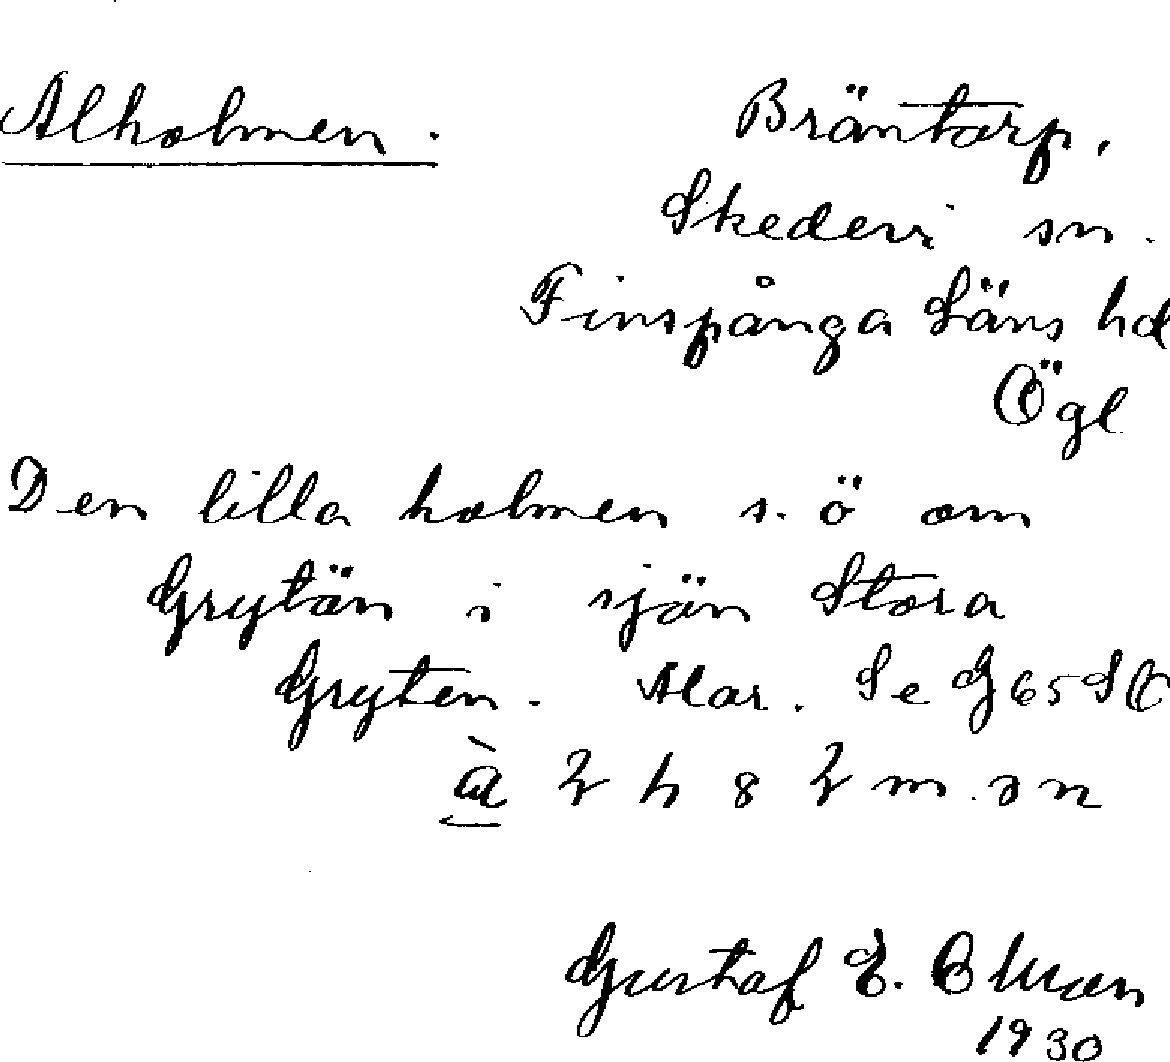 Alholmen. Bräntorp,
Skedevi sn.
Finspånga Läns hd
Ögl
Den lilla holmen s.ö om
Grytön i sjön Stora
Gryten. Alar. Se G 65 SO
Gustaf E. Olsson
1930